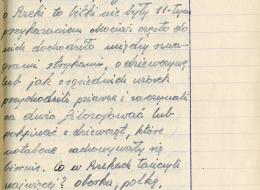 o Rzeki to bitki nie były 11-tym
przykazaniem chociaż często do
nich dochodziło między szwa-
grami stryksami, o dziewczynę
lub jak z sąsiednich wiosek
przychodzili pijani i zaczynali
za dużo filozofować lub
podpinać z dziewcząt, które
notabene zachowywały się
biernie. Co w Rzekach tańczyli
najwięcej? oberka, polkę,